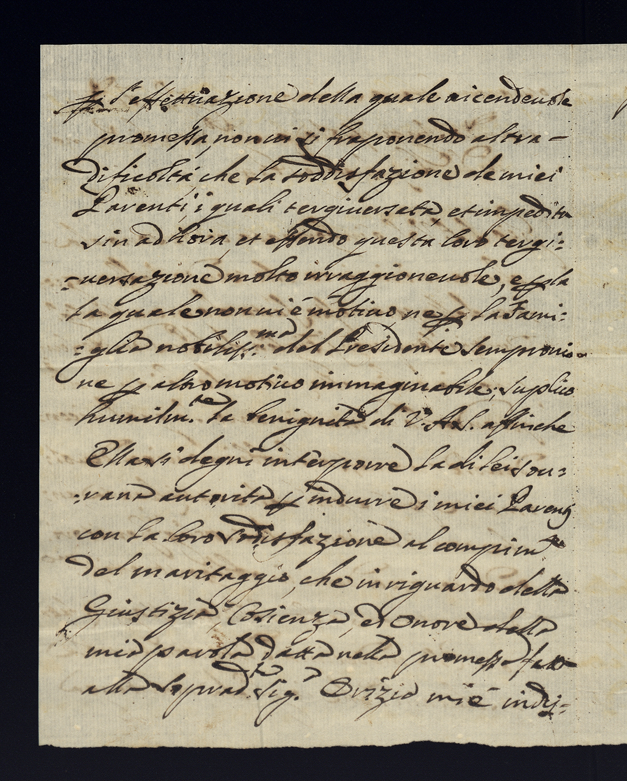 l'effettuazione della quale vicendevole
promessa non vi si fraponendo altra
dificoltà che la soddisfazione de miei
Parenti i quali tergiversata, et impedita
sin ad hora, et essendo questa loro tergi=
=versazione molto irraggionevole, e
la quale non vi è motivo ne p la Fami=
=glia nobiliss.ma del Presidente Sempronio
ne p altro motivo immaginabile, suplico
humilm.te la benignità di V.A.S. affinche
Ella si degni interporre la di lei sou=
=rana autorità p indurre i miei Parenti
con la loro sodisfazione al comprim.to
del maritaggio, che in riguardo della
Giustizia, Cosienza, ed Onore della
mia parola datta nella promessa fatta
alla sopradta Sig.a Orizio mi è indi=